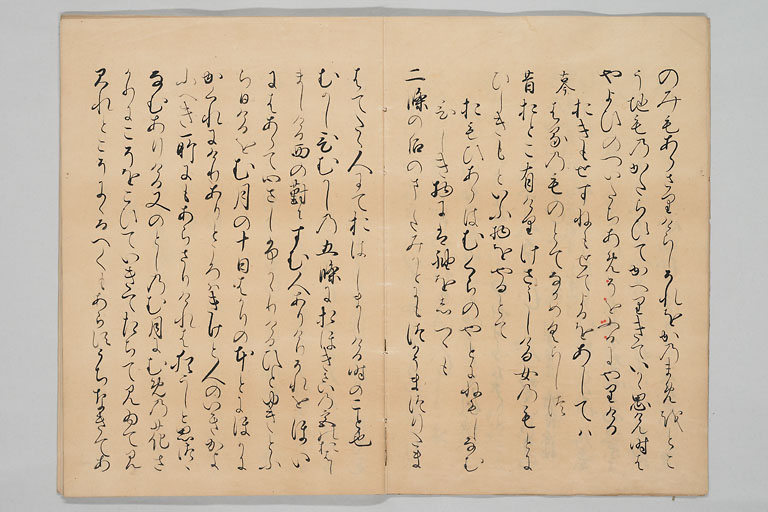 のみもあらさりけらしそれをかのまめおとこ
うちものかたらひてかへりきていかゝ思けん時は
やよひのついたちあめそをふるにやりける
おきもせすねもせてよるをあかしてハ
はるのものとてなかめくらしつ
昔おとこ有けりけさうしける女のもとに
ひしきもといふ物をやるとて
おもひあらはむくらのやとにねもしなむ
ひしき物には袖をしつゝも
二條の后のまたみかとにもつかうまつりたま
はてたゝ人にておはしましける時のこと也
むかしひむかしの五條におほきさいの宮おはし
ましける西の對にすむ人ありけりそれをほい
にはあらて心さしふかゝりけるひとゆきとふ
らひけるをむ月の十日はかりのほとにほかに
かくれにけりありところハきけと人のいきかよ
ふへき所にもあらさりけれは猶うしと思つゝ
なむありける又のとしのむ月にむめの花さ
かりにこそをこひていきてたちて見ゐて見
みれとこそににるへくもあらすうちなきてあ